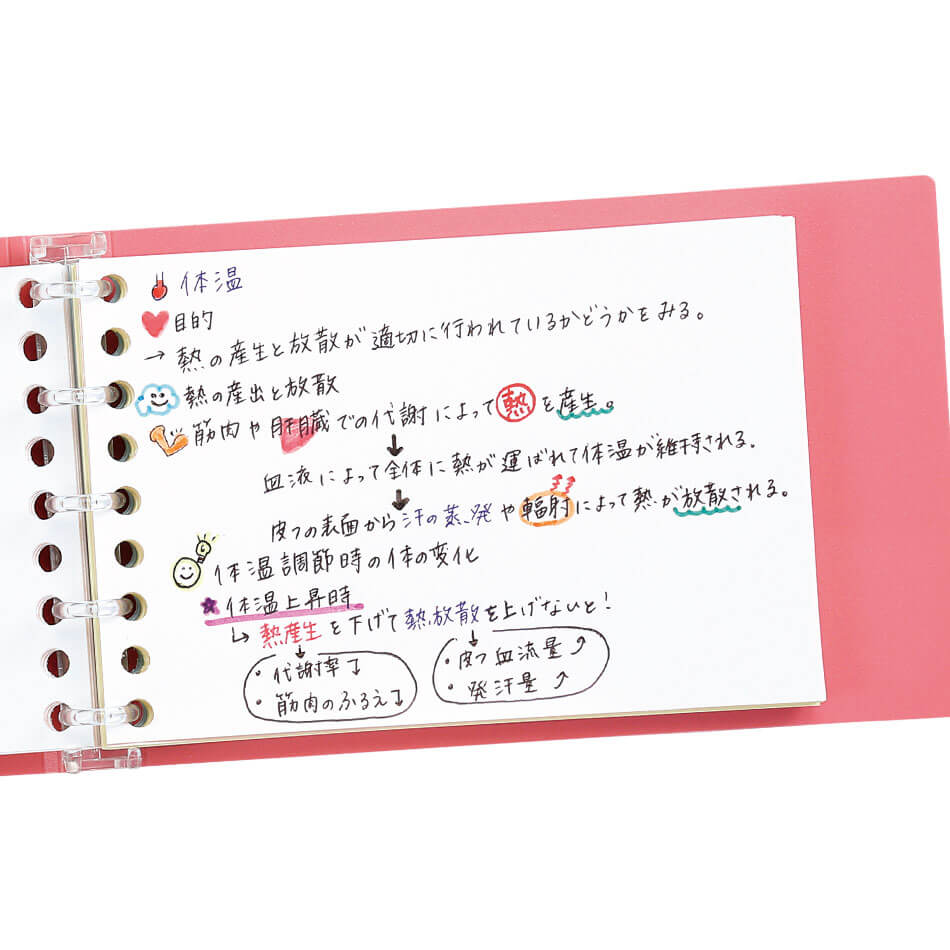 体温
目的
→ 熱の産生と放散が適切に行われているかどうかをみる。
熱の産出と放散
筋肉や肝臓での代謝によって熱を産生。
↓
血液によって全体に熱が運ばれて体温が維持される。
↓
皮フの表面から汗の蒸発や輻射によって熱が放散される。
体温調節時の体の変化
★体温上昇時
↳ 熱産生を下げて熱放散を上げないと!
↓ ↓
・代謝率↓ ・皮フ血流量↑
・筋肉のふるえ↓ ・発汗量↑